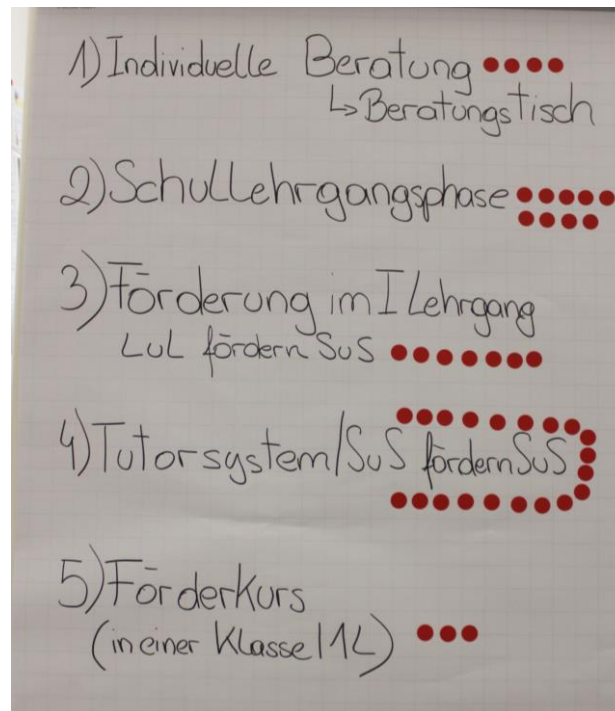 1) Individuelle Beratung
↳ Beratungstisch
2) Schullehrgangsphase
3) Förderung im I Lehrgang
LuL fördern SuS
4) Tutorsystem/SuS fördern SuS
5) Förderkurs
(in einer Klasse/1L)